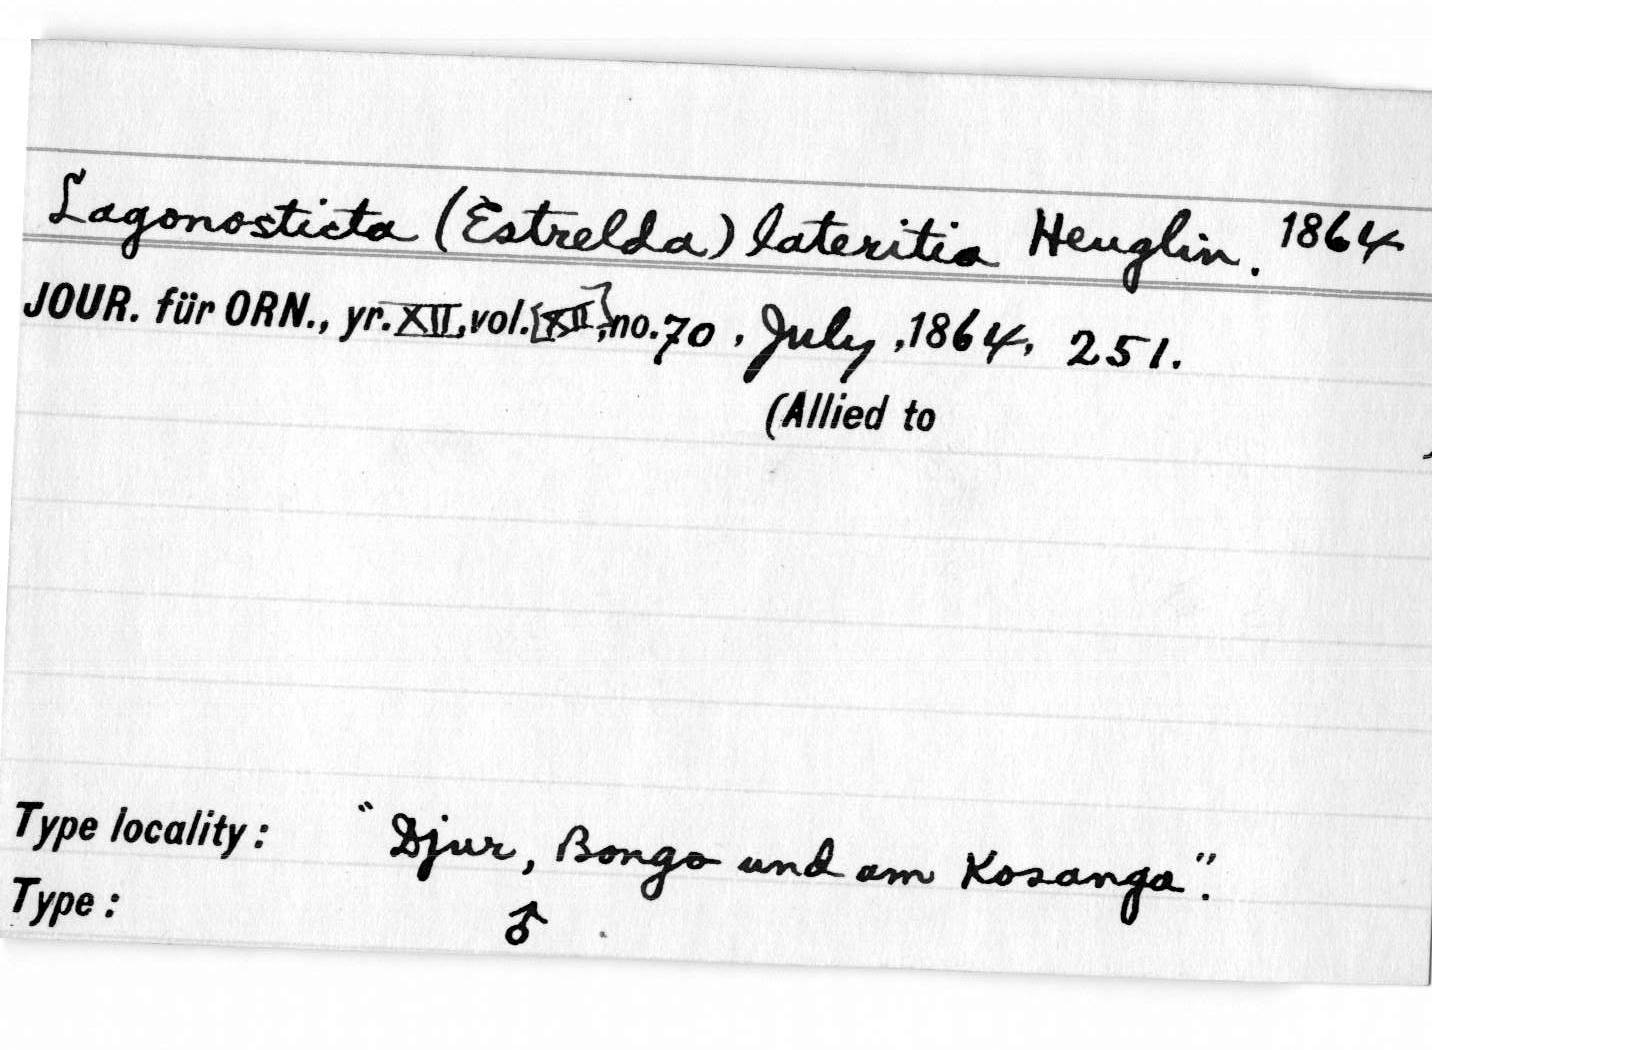 Lagonosticta (Estrelda) lateritia Heuglin. 1864
JOUR. für ORN., yr. XII, vol. [XII], no. 70, July, 1864, 251.
(Allied to )
Type locality: "Djur, Bongo und am Kosanga".
Type: ♂.